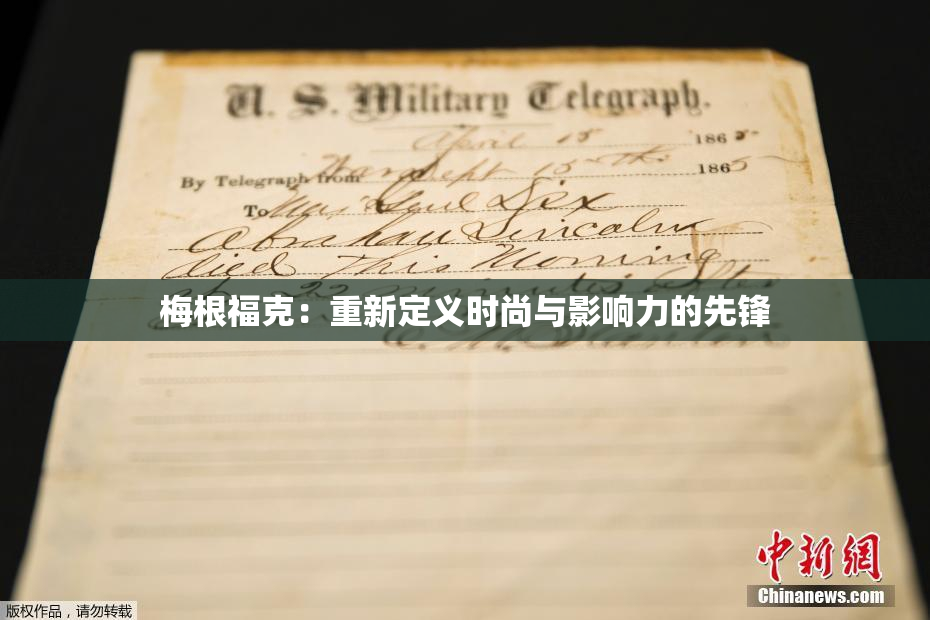 U. S. Military Telegraph.
April 15 1865
By Telegraph from War Dept 15th 1865
To Maj Genl Dix
Abraham Lincoln
died This Morning
at 22 minutes after
梅根福克：重新定义时尚与影响力的先锋
E. M. Stanton
中新網
Chinanews.com
版权作品，请勿转载